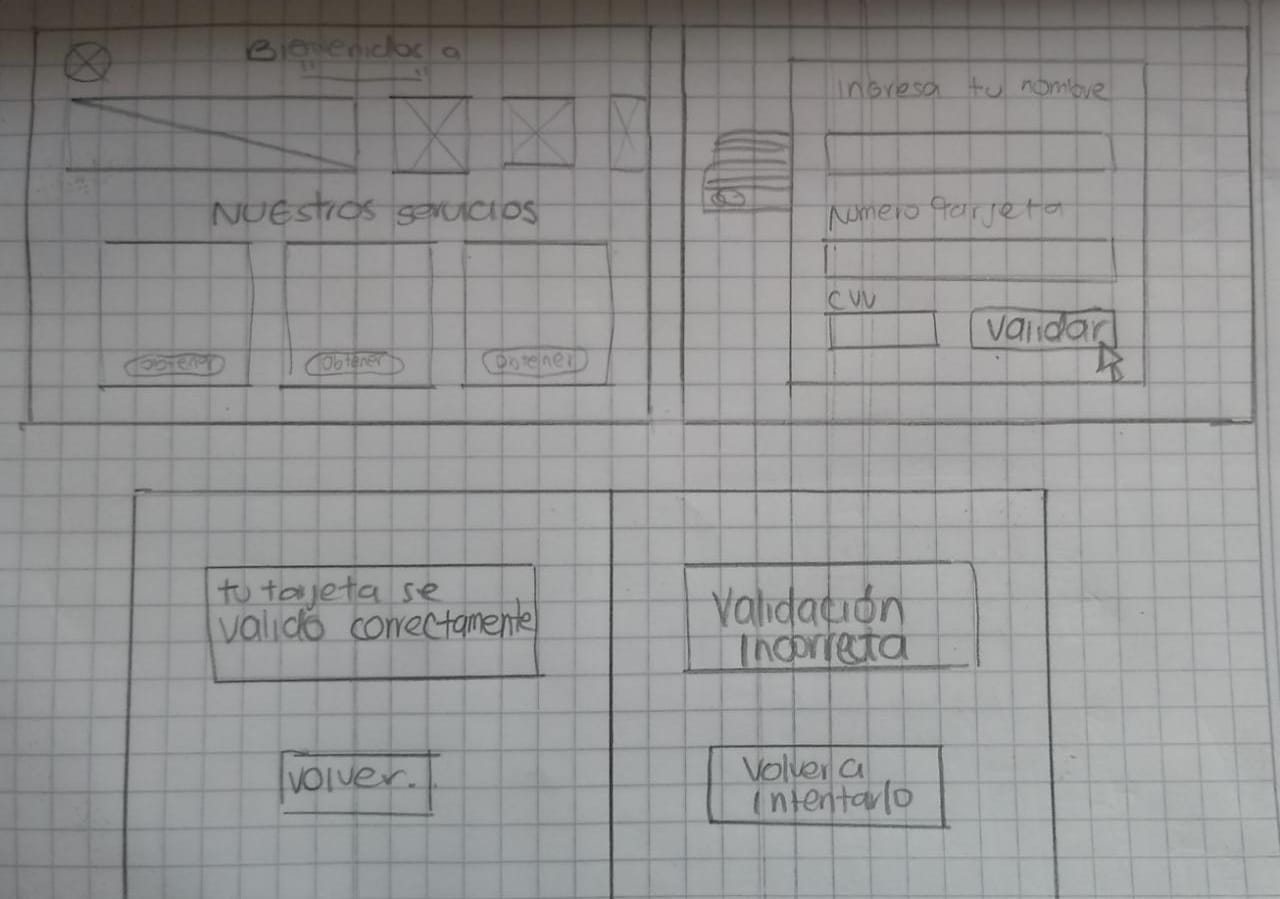 Bienvenidos a
" "
Nuestros servicios
Obtener
Obtener
Obtener
Ingresa tu nombre
Numero tarjeta
CVV
Validar
tu tarjeta se
validó correctamente
Volver.
Validación
Incorrecta
Volver a
Intentarlo